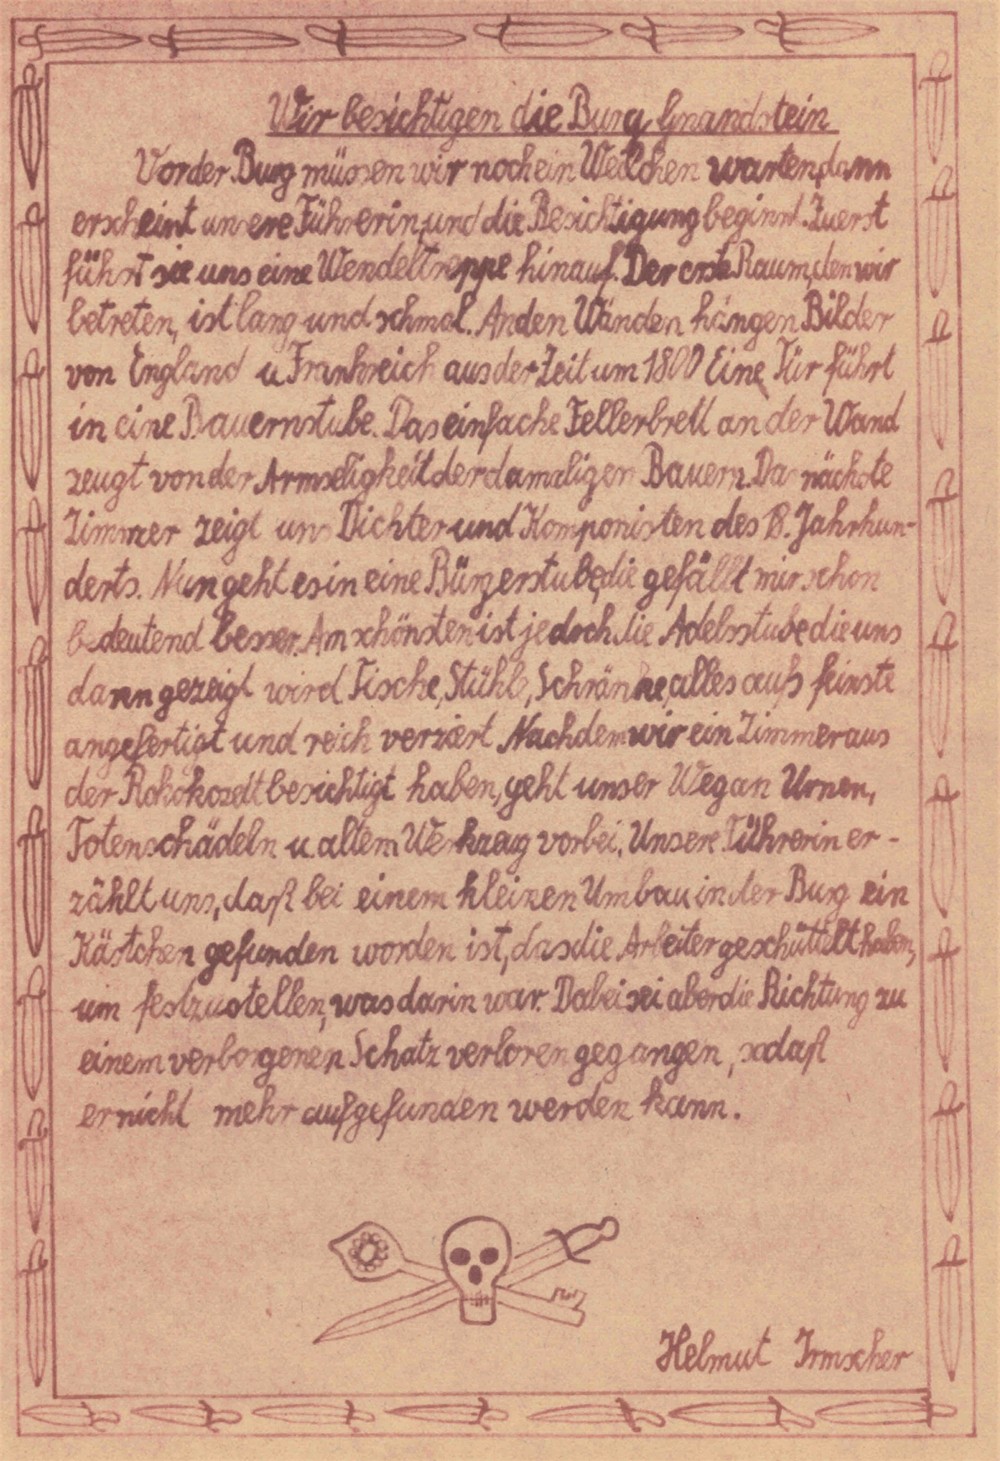 Wir besichtigen die Burg Gnandstein
Vor der Burg müssen wir noch ein Weilchen warten, dann
erscheint unsere Führerin, und die Besichtigung beginnt. Zuerst
führt sie uns eine Wendeltreppe hinauf. Der erste Raum, den wir
betreten, ist lang und schmal. An den Wänden hängen Bilder
von England u. Frankreich aus der Zeit um 1800 Eine Tür führt
in eine Bauernstube. Das einfache Tellerbrett an der Wand
zeugt von der Armseligkeit der damaligen Bauern. Das nächste
Zimmer zeigt uns Dichter und Komponisten des 18. Jahrhun-
derts. Nun geht es in eine Bürgerstube, die gefällt mir schon
bedeutend besser. Am schönsten ist jedoch die Adelsstube die uns
dann gezeigt wird Tische, Stühle, Schränke, alles aufs feinste
angefertigt und reich verziert Nachdem wir ein Zimmer aus
der Rokokozeit besichtigt haben, geht unser Weg an Urnen,
Totenschädeln u. altem Werkzeug vorbei. Unsere Führerin er-
zählt uns, daß bei einem kleinen Umbau in der Burg ein
Kästchen gefunden worden ist, das die Arbeiter geschüttelt haben,
um festzustellen, was darin war. Dabei sei aber die Richtung zu
einem verborgenen Schatz verloren gegangen, sodaß
er nicht mehr aufgefunden werden kann.
Helmut Irmscher